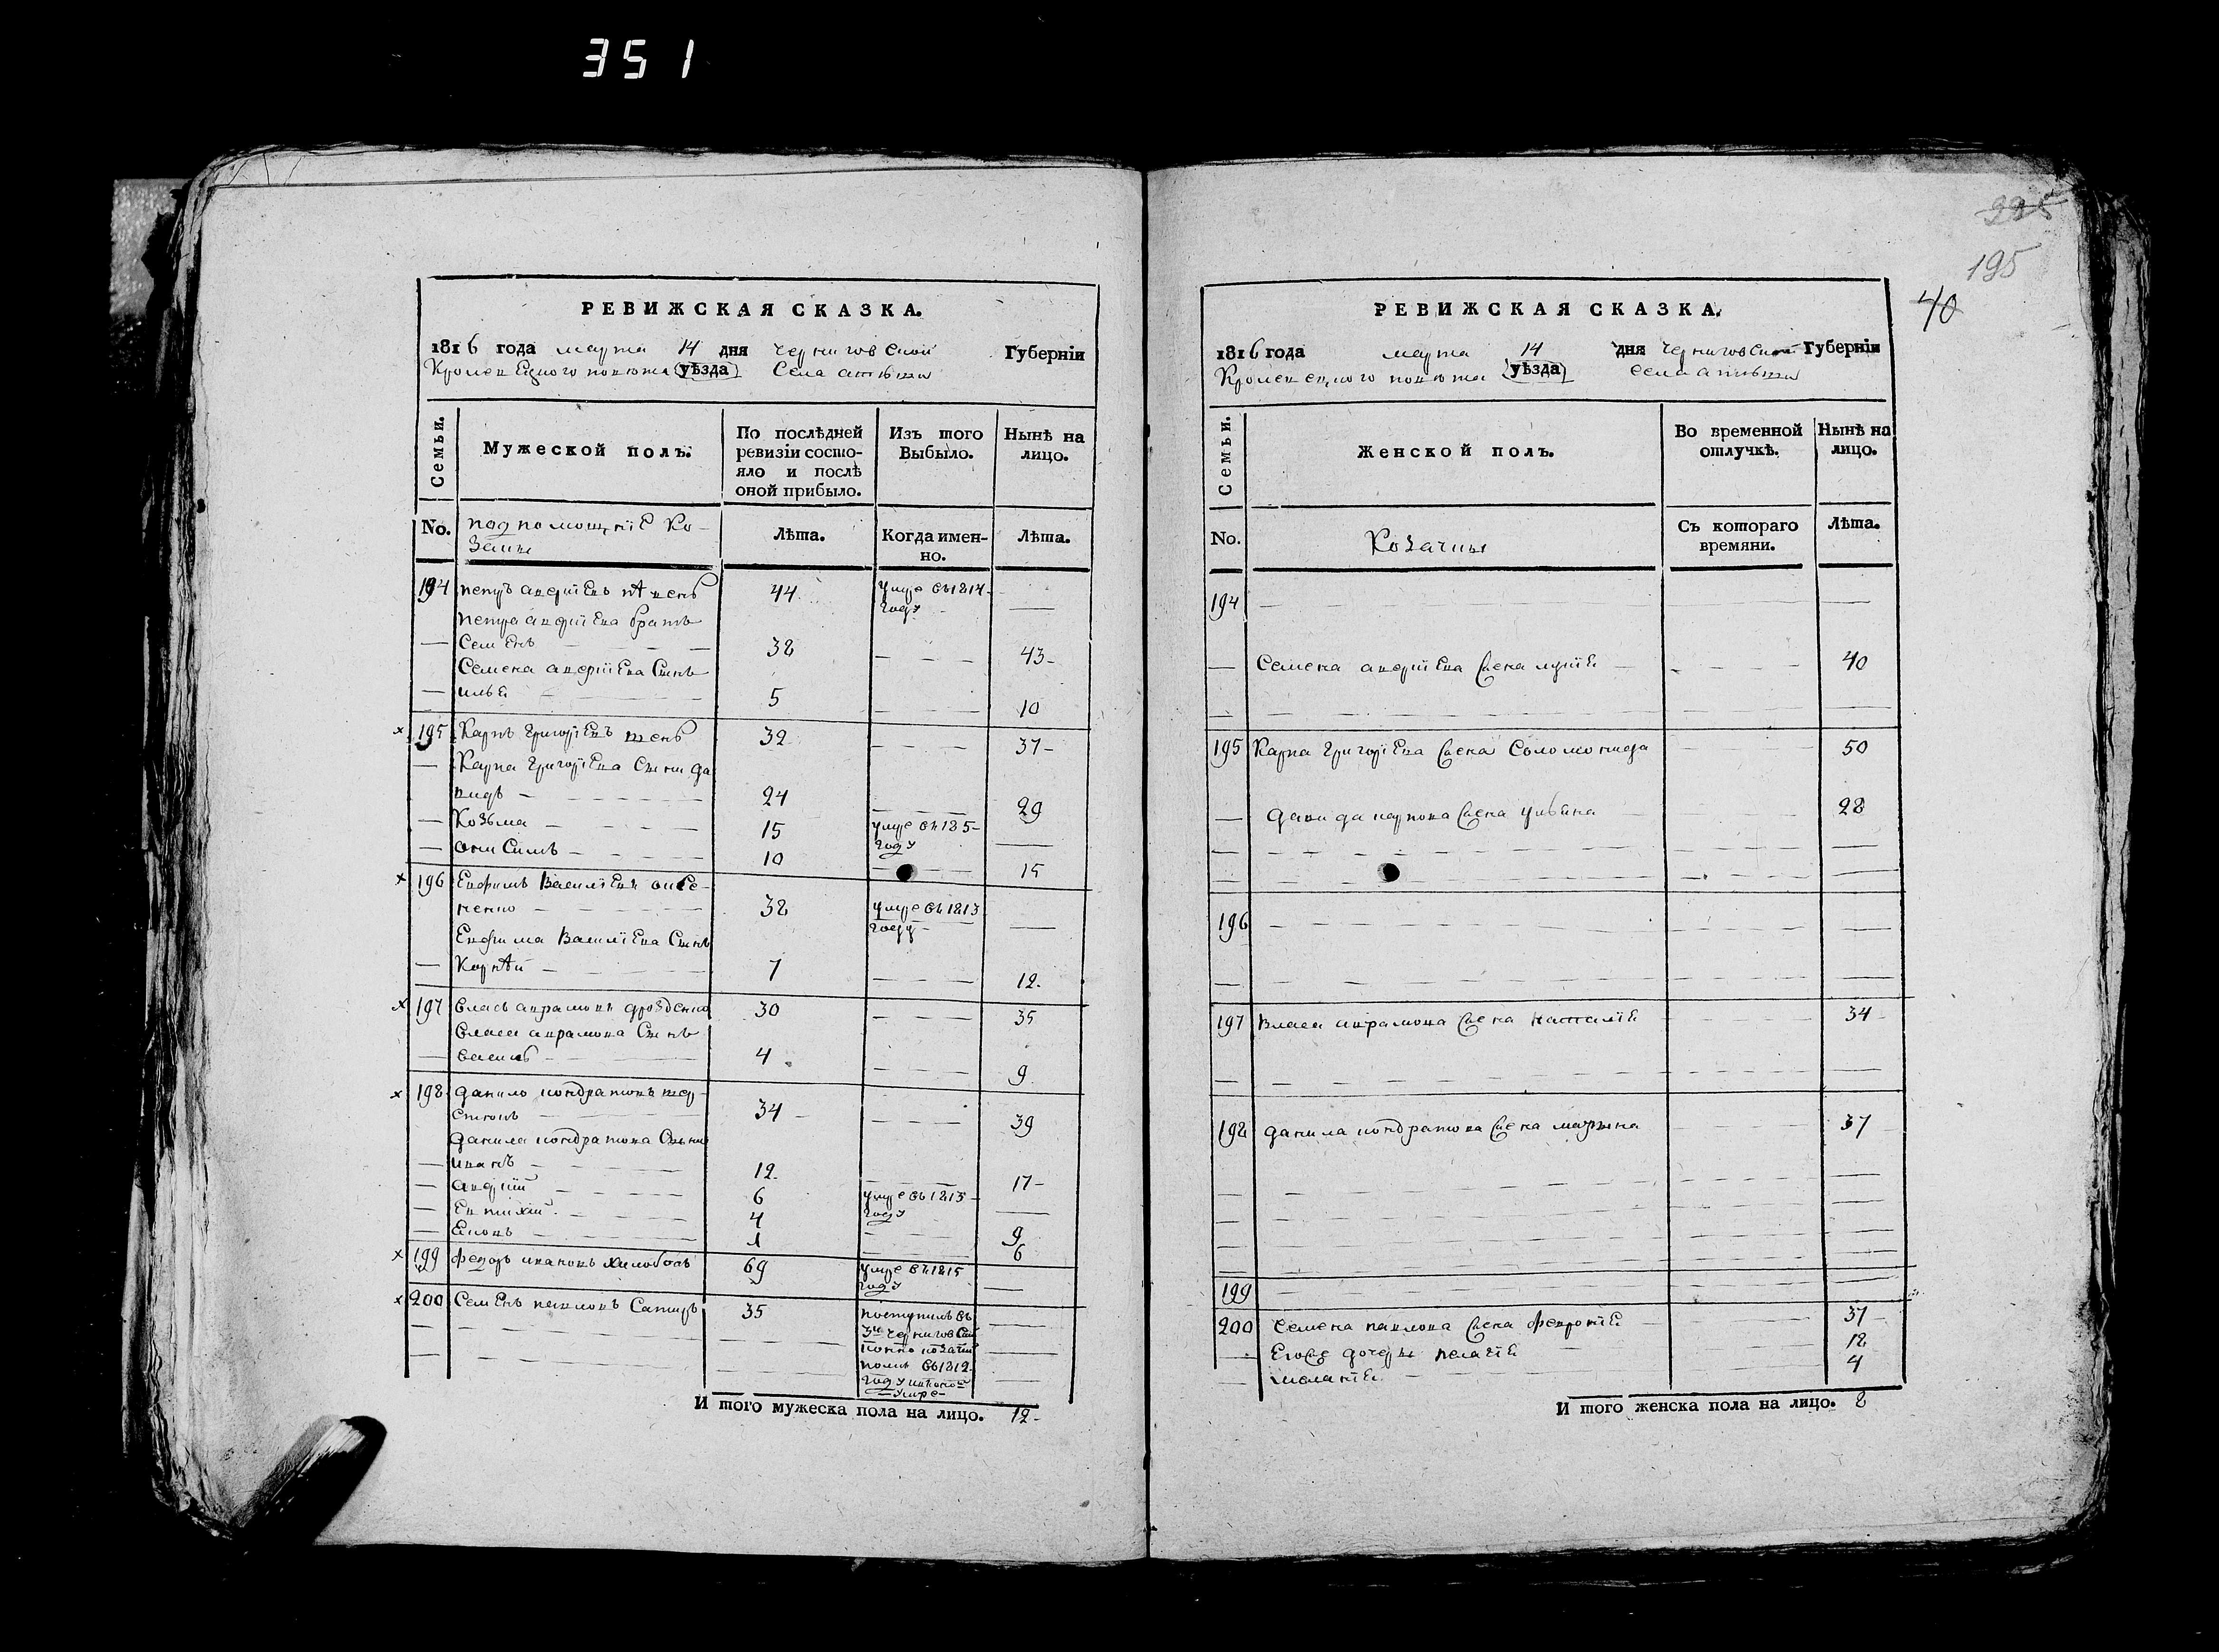 351
225
195
40
РЕВИЖСКАЯ СКАЗКА.
1816 года марта 14 дня Черниговской Губерніи
Кролевецкого повѣта уѣзда Села
Семьи.
Мужеской полъ.
По послѣдней ревизіи состо-
яло и послѣ
оной прибыло.
Изъ того
Выбыло.
Нынѣ на
лицо.
No.
подпомощніе Ко-
заки
Лѣта.
Когда имен-
но.
Лѣта.
194 петръ андріевъ 44 умре въ 1814
году
петра андріева братъ
Семенъ 38 43
Семена андріева Сынъ
илья 5 10
195 Карпъ Григоріевъ 32 37
Карпа Григоріева Сыни да
видъ 24 29
Козьма 15 умре въ 1815
году
онисимъ 10 15
196 Евфимъ Василіевъ
38 умре въ 1813
году
Евфима Василіева Сынъ
Корнѣй 7 12
197 власъ аврамовъ дрозденко 30 35
власа аврамова Сынъ
василь 4 9
198 данило кондратовъ шер
стюкъ 34 39
данила кондратова Сыни
иванъ 12 17
андрій 6 умре въ 1813
году
Евтихій 4 9
1 6
199 федоръ ивановъ 69 умре въ 1815
году
200 Семенъ павловъ 35 поступилъ въ
3й черниговскій
конно козачій
полкъ въ 1812
году
умре
И того мужеска пола на лицо. 12
РЕВИЖСКАЯ СКАЗКА.
1816 года марта 14 дня Черниговской Губерніи
Кролевецкого повѣта уѣзда Села
Семьи.
Женской полъ.
Во временной
отлучкѣ.
Нынѣ на
лицо.
No.
Козачки
Съ котораго
времяни.
Лѣта.
194
Семена андріева жена 40
195 Карпа Григоріева жена Соломонида 50
давида карпова жена ульяна 28
196
197 власа аврамова жена наталія 34
198 данила кондратова жена марина 37
199
200 Семена павлова жена февронія 37
Егоже дочери пелагія 12
меланія 4
И того женска пола на лицо. 8